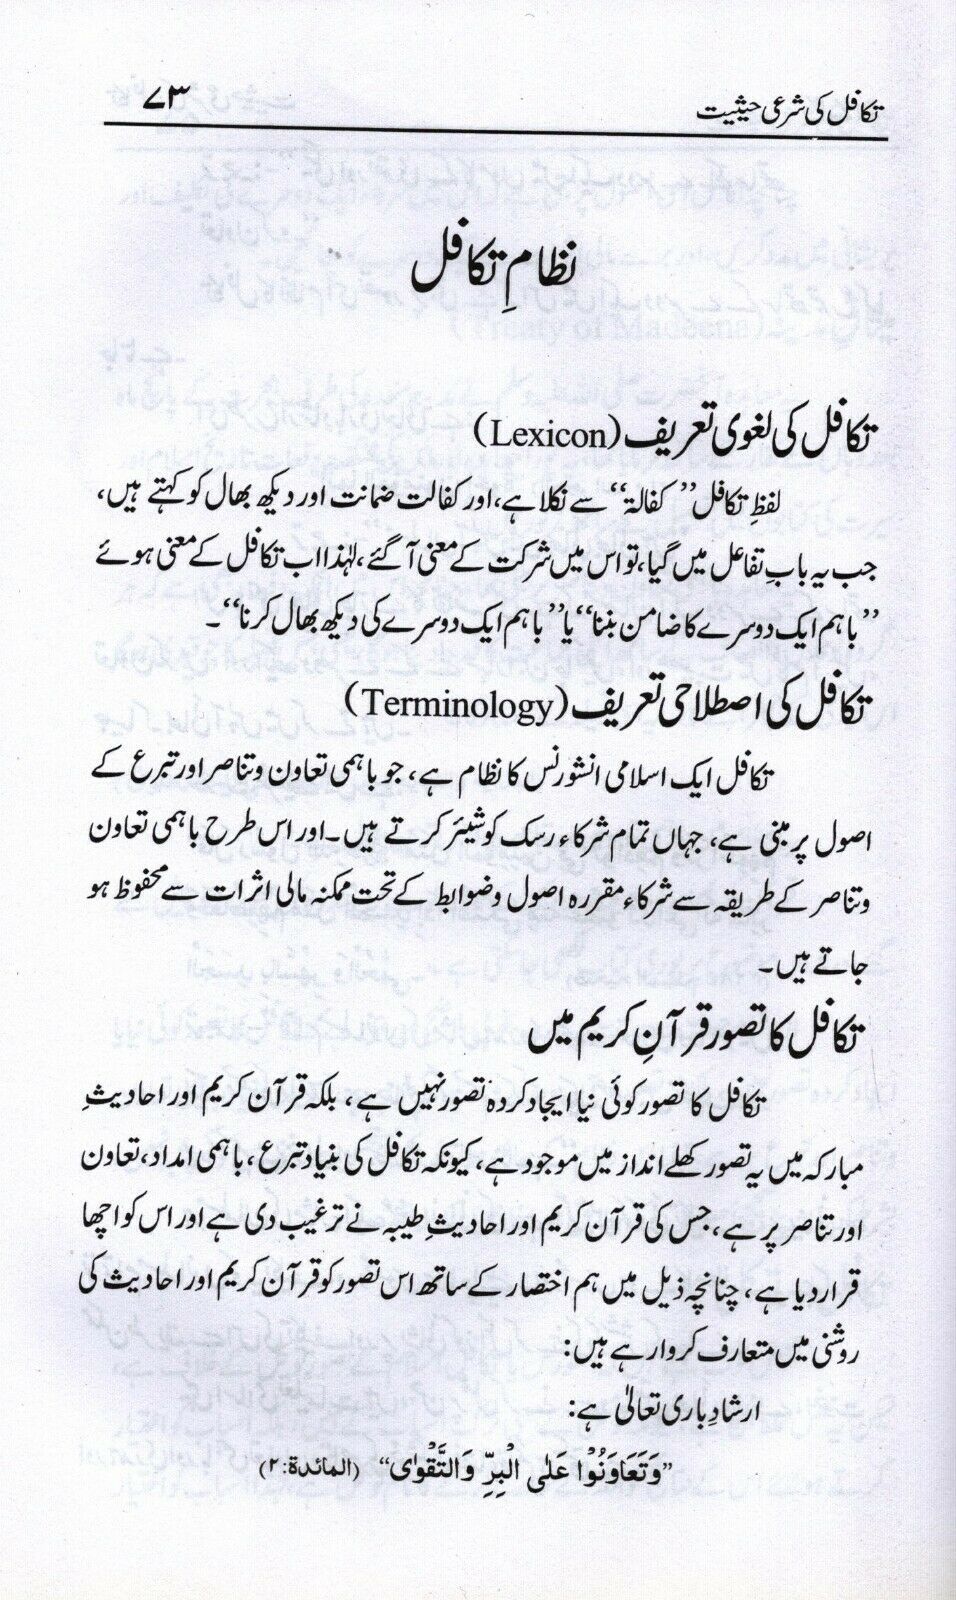 تکافل کی شرعی حیثیت ۷۳
نظامِ تکافل
تکافل کی لغوی تعریف (Lexicon)
لفظِ تکافل ”کفالة“ سے نکلا ہے، اور کفالت ضمانت اور دیکھ بھال کو کہتے ہیں،
جب یہ بابِ تفاعل میں گیا، تو اس میں شرکت کے معنی آ گئے، لہٰذا اب تکافل کے معنی ہوئے
”باہم ایک دوسرے کا ضامن بننا“ یا ”باہم ایک دوسرے کی دیکھ بھال کرنا“۔
تکافل کی اصطلاحی تعریف (Terminology)
تکافل ایک اسلامی انشورنس کا نظام ہے، جو باہمی تعاون وتناصر اور تبرع کے
اصول پر مبنی ہے، جہاں تمام شرکاء رسک کو شیئر کرتے ہیں۔ اور اس طرح باہمی تعاون
وتناصر کے طریقہ سے شرکاء مقررہ اصول وضوابط کے تحت ممکنہ مالی اثرات سے محفوظ ہو
جاتے ہیں۔
تکافل کا تصور قرآنِ کریم میں
تکافل کا تصور کوئی نیا ایجاد کردہ تصور نہیں ہے، بلکہ قرآن کریم اور احادیثِ
مبارکہ میں یہ تصور کھلے انداز میں موجود ہے، کیونکہ تکافل کی بنیاد تبرع، باہمی امداد، تعاون
اور تناصر پر ہے، جس کی قرآن کریم اور احادیثِ طیبہ نے ترغیب دی ہے اور اس کو اچھا
قرار دیا ہے، چنانچہ ذیل میں ہم اختصار کے ساتھ اس تصور کو قرآن کریم اور احادیث کی
روشنی میں متعارف کروا رہے ہیں:
ارشادِ باری تعالیٰ ہے:
”وَتَعَاوَنُوْا عَلَی الْبِرِّ وَالتَّقْوٰی“ (المائدة:۲)